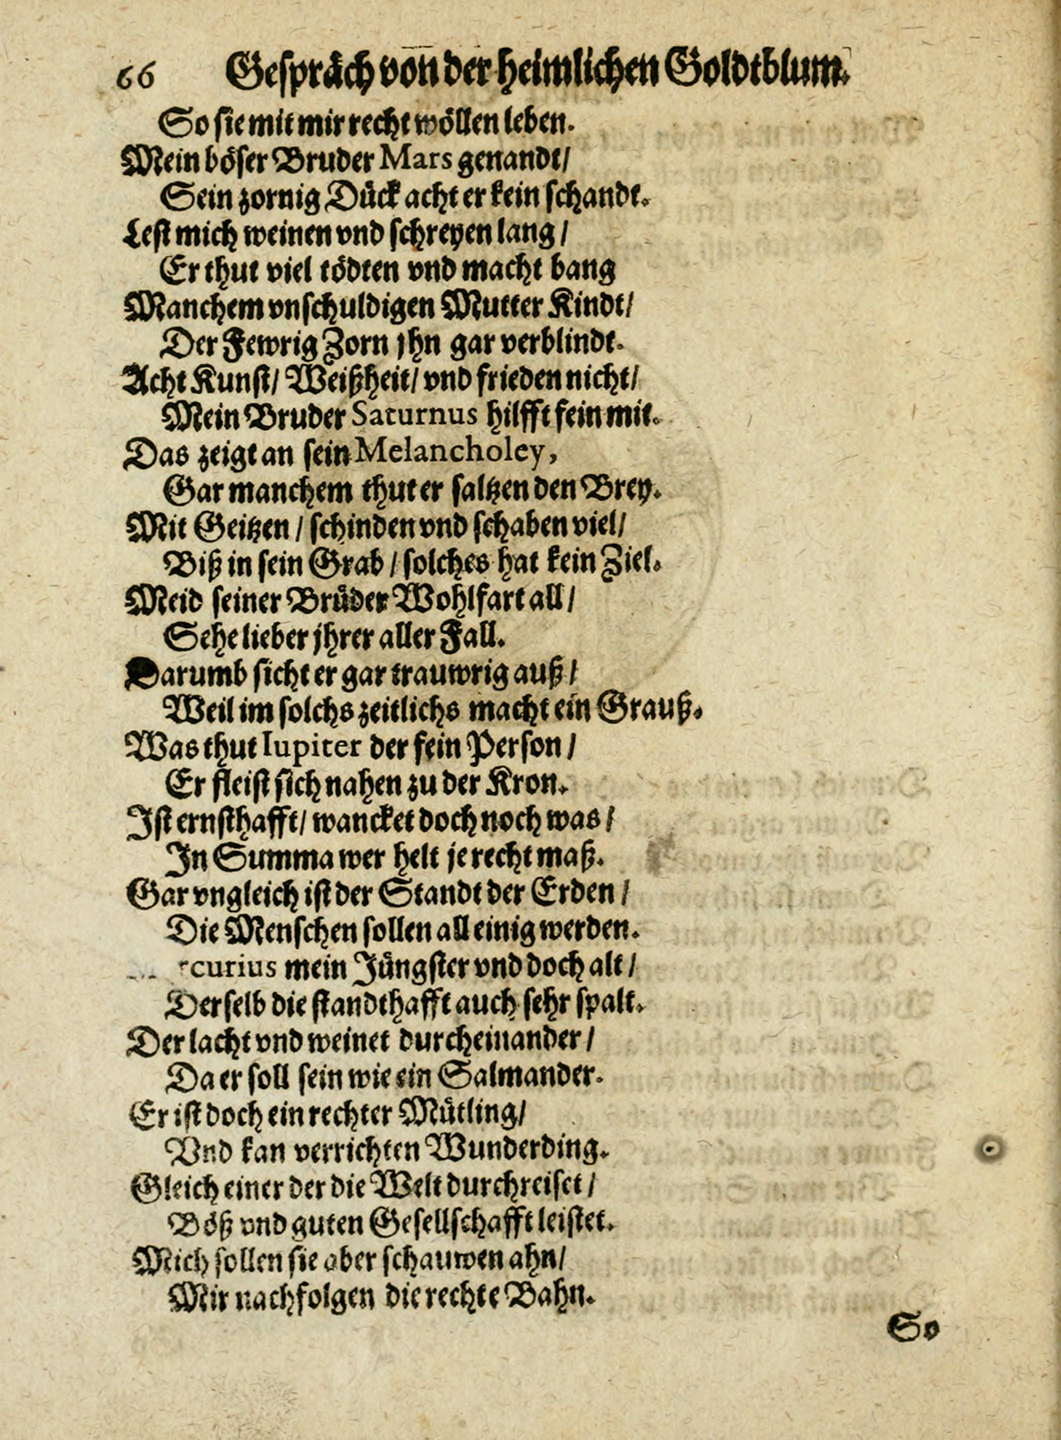 66 Gespräch von der heimlichen Goldtblum.
So sie mit mir recht wöllen leben.
Mein böser Bruder Mars genandt/
Sein zornig Dück acht er kein schandt.
Lest mich weinen vnd schreyen lang/
Er thut viel tödten vnd macht bang
Manchem vnschuldigen Mutter Kindt/
Der Fewrig Zorn jhn gar verblindt.
Acht Kunst/ Weißheit/ vnd frieden nicht/
Mein Bruder Saturnus hilfft fein mit.
Das zeigt an sein Melancholey,
Gar manchem thut er saltzen den Brey.
Mit Geitzen/ schinden vnd schaben viel/
Biß in sein Grab/ solches hat kein Ziel.
Meid seiner Brüder Wohlfart all/
Sehe lieber jhrer aller Fall.
Darumb sicht er gar trauwrig auß/
Weil im solchs zeitlichs macht ein Grauß.
Was thut Iupiter der fein Person/
Er fleist sich nahen zu der Kron.
Ist ernsthafft/ wancket doch noch was/
In Summa wer helt je recht maß.
Gar vngleich ist der Standt der Erden/
Die Menschen sollen all einig werden.
rcurius mein Jüngster vnd doch alt/
Derselb die standthafft auch sehr spalt.
Der lacht vnd weinet durcheinander/
Da er soll sein wie ein Salmander.
Er ist doch ein rechter Mütling/
Vnd kan verrichten Wunderding.
Gleich einer der die Welt durchreiset/
Böß vnd guten Gesellschafft leistet.
Mich sollen sie aber schauwen ahn/
Mir nachfolgen die rechte Bahn.
So